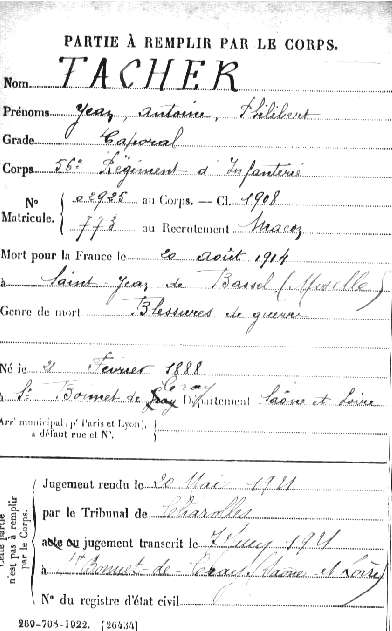 PARTIE À REMPLIR PAR LE CORPS.
Nom TACHER
Prénoms Jean, Antoine, Philibert
Grade Caporal
Corps 56e Régiment d'Infanterie
No Matricule. { 02925 au Corps. — Cl. 1908
773 au Recrutement Macon
Mort pour la France le 20 août 1914
à Saint Jean de Bassel (Moselle)
Genre de mort Blessures de guerre
Né le 21 Février 1888
à St Bonnet de Cray Département Saône et Loire
Arr' municipal (pr Paris et Lyon),
à défaut rue et No.
Cette partie n'est pas à remplir par le Corps.
Jugement rendu le 20 Mai 1921
par le Tribunal de Charolles
acte ou jugement transcrit le 1921
à St Bonnet-de-Cray (Saône et Loire)
No du registre d'état civil
269-708-1922. [26434]